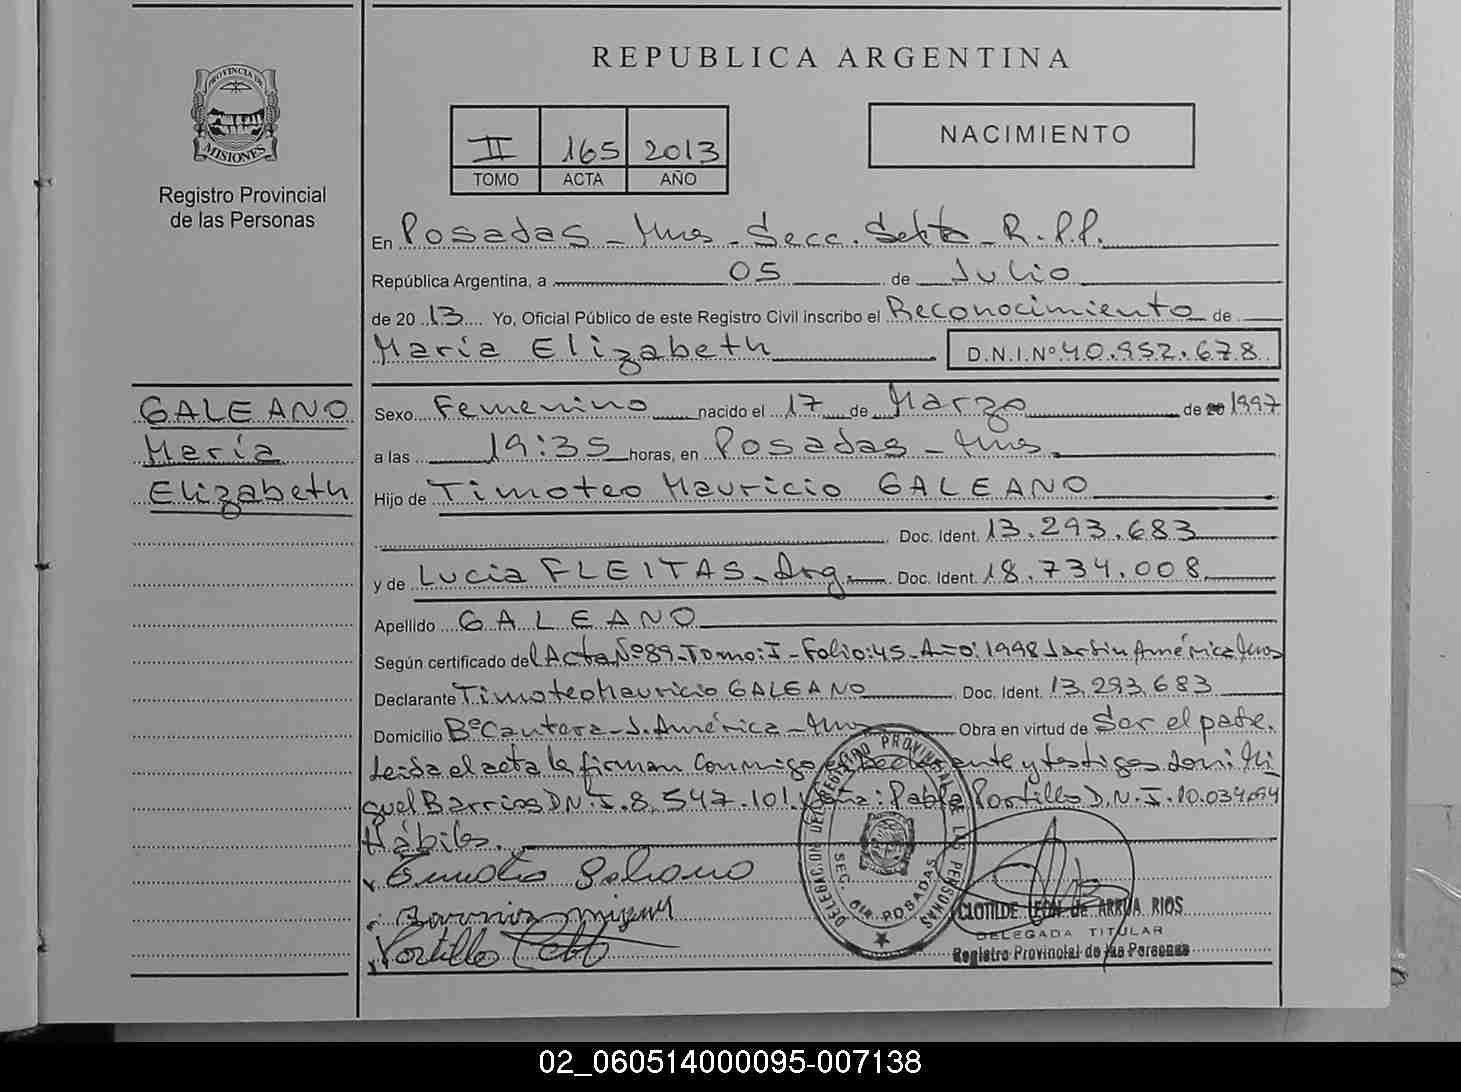 REPUBLICA ARGENTINA
PROVINCIA DE
MISIONES
Registro Provincial
de las Personas
II 165 2013
TOMO ACTA AÑO
NACIMIENTO
En Posadas - Mnes - Secc. Sexta - R.P.P.
República Argentina, a 05 de Julio
de 2013 Yo, Oficial Público de este Registro Civil inscribo el Reconocimiento de
María Elizabeth D.N.I.Nº 40.952.678
GALEANO
María
Elizabeth
Sexo Femenino nacido el 17 de Marzo de 1997
a las 19:35 horas, en Posadas - Mnes.
Hijo de Timoteo Mauricio GALEANO
Doc. Ident. 13.293.683
y de Lucia FLEITAS - Arg. Doc. Ident. 18.734.008
Apellido GALEANO
Según certificado del Acta Nº89-Tomo:I-Folio:45-Año:1998 Jardin América Mnes
Declarante Timoteo Mauricio GALEANO Doc. Ident. 13.293.683
Domicilio Bº Cantera - J. América - Mnes Obra en virtud de Ser el padre.
Leida el acta la firman conmigo el Declarante y testigos don: Mi
guel Barrios D.N.I. 8.547.101. y Pablo Portillo D.N.I. 10.034.
Hábiles.
Barrios Miguel
Portillo
DELEGACION DEL REGISTRO PROVINCIAL DE LAS PERSONAS
SEC. 6ta. POSADAS
CLOTILDE LEON de ARRUA RIOS
DELEGADA TITULAR
Registro Provincial de las Personas
02_060514000095-007138